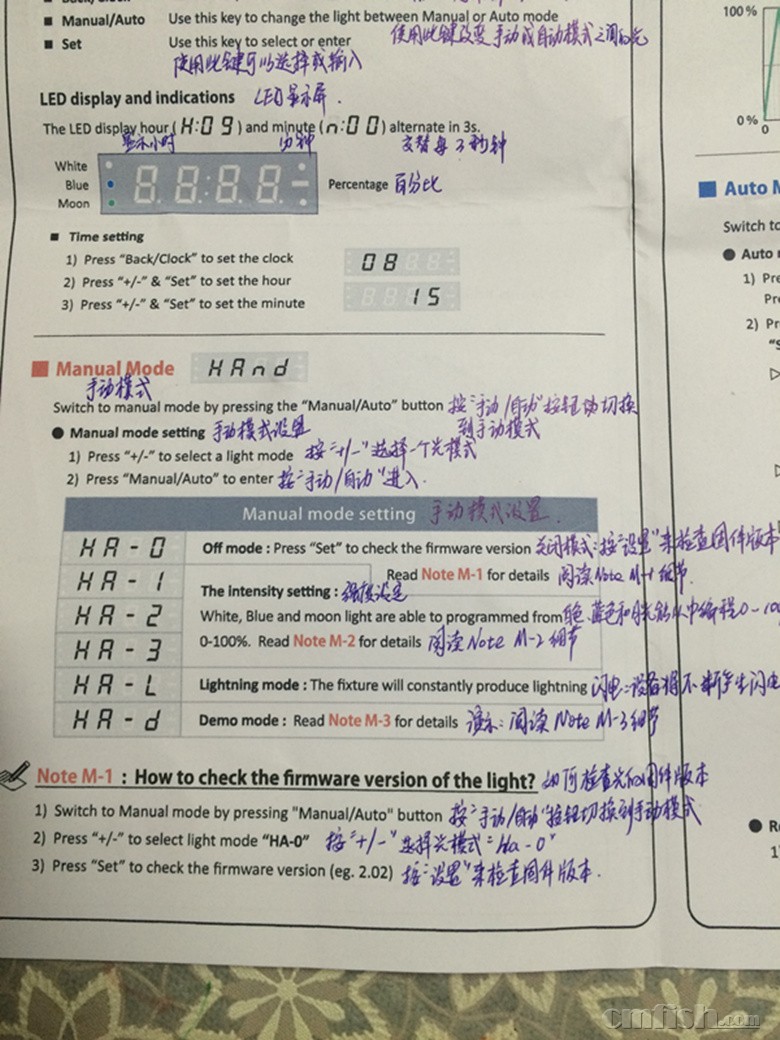 ■ Manual/Auto Use this key to change the light between Manual or Auto mode
■ Set Use this key to select or enter 使用此键改变手动或自动模式之间的光
使用此键可以选择或输入
LED display and indications LED显示屏.
The LED display hour (H:09) and minute (n:00) alternate in 3s.
显示小时 分钟 交替每3秒钟
White
Blue 88:88 Percentage 百分比
Moon
■ Time setting
1) Press "Back/Clock" to set the clock 08
2) Press "+/-" & "Set" to set the hour
3) Press "+/-" & "Set" to set the minute 15
Manual Mode HAnd
手动模式
Switch to manual mode by pressing the "Manual/Auto" button 按"手动/自动"按钮 切换
到手动模式
● Manual mode setting 手动模式设置
1) Press "+/-" to select a light mode 按"+/-"选择一个光模式
2) Press "Manual/Auto" to enter 按"手动/自动"进入.
Manual mode setting 手动模式设置.
HA-0 Off mode : Press "Set" to check the firmware version 关闭模式:按"设置"来检查固件版本
HA-1 Read Note M-1 for details 阅读Note M-1细节.
The intensity setting : 强度设定
HA-2 White, Blue and moon light are able to programmed from 蓝色和月光 编程0-100
HA-3 0-100%. Read Note M-2 for details 阅读Note M-2细节
HA-L Lightning mode : The fixture will constantly produce lightning 闪电:设备将不断产生闪电
HA-d Demo mode : Read Note M-3 for details 演示:阅读Note M-3细节
Note M-1 : How to check the firmware version of the light? 如何检查光的固件版本
1) Switch to Manual mode by pressing "Manual/Auto" button 按"手动/自动"按钮切换到手动模式
2) Press "+/-" to select light mode "HA-0" 按"+/-"选择光模式"Ha-0"
3) Press "Set" to check the firmware version (eg. 2.02) 按"设置"来检查固件版本.
100 %
0 %
0
Auto M
Switch to
● Auto
1) Pre
Pre
2) Pr
"S
● R
1
cmfish.com